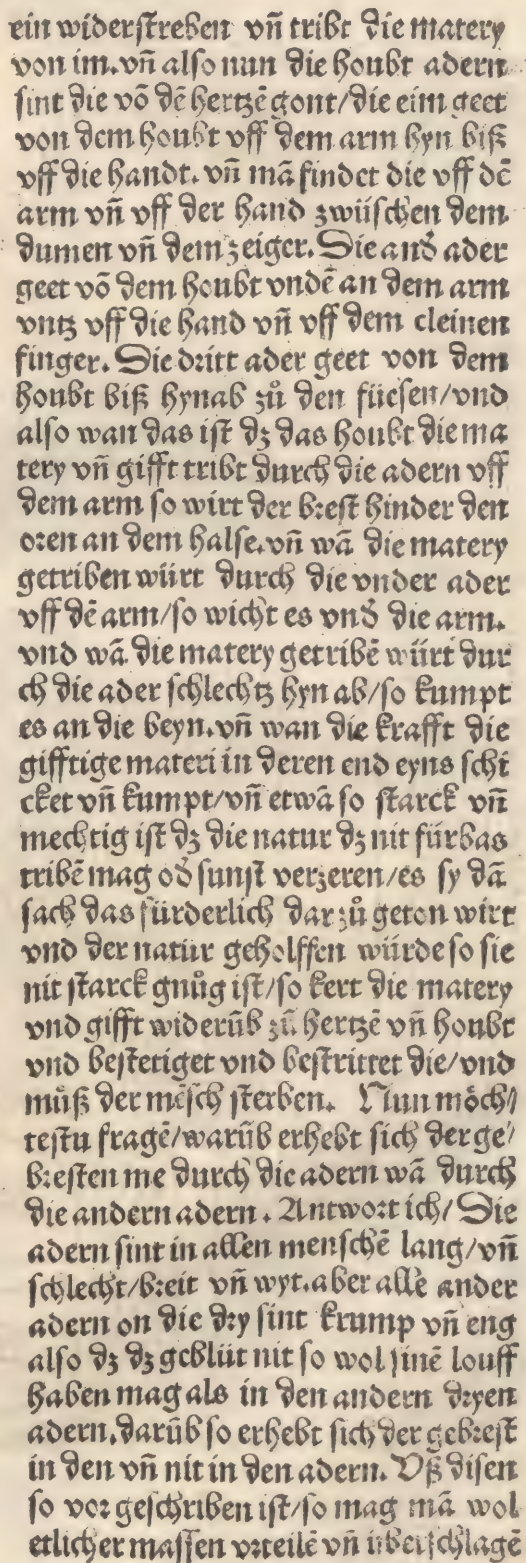 ein widerstreben vñ tribt die matery
von im. vñ also nun die houbt adern
sint die vō dē hertzē gont/die eim geet
von dem houbt vff dem arm hyn biß
vff die handt. vñ mā findet die vff dē
arm vñ vff der hand zwüschen dem
dumen vñ dem zeiger. Die and̄ ader
geet vō dem houbt vndē an dem arm
vntz vff die hand vñ vff dem cleinen
finger. Die dritt ader geet von dem
houbt biß hynab zů den füesen/vnd
also wan das ist dz das houbt die ma
tery vñ gifft tribt durch die adern vff
dem arm so wirt der brest hinder den
oren an dem halse. vñ wā die matery
getriben würt durch die vnder ader
vff dē arm/so wicht es vnd̄ die arm.
vnd wā die matery getribē würt dur
ch die ader schlechtz hyn ab/so kumpt
es an die beyn. vñ wan die krafft die
gifftige materi in deren end eyns schi
cket vñ kumpt/vñ etwā so starck vñ
mechtig ist dz die natur dz nit fürbas
tribē mag od̄ sunst verzeren/es sy dā
sach das fürderlich dar zů geton wirt
vnd der natür geholffen würde so sie
nit starck gnůg ist/so kert die matery
vnd gifft widerūb zů hertzē vñ houbt
vnd bestetiget vnd bestrittet die/vnd
můß der mēsch sterben. Nun möch/
testu fragē/warūb erhebt sich der ge/
bresten me durch die adern wā durch
die andern adern. Antwort ich/Die
adern sint in allen menschē lang/vñ
schlecht/breit vñ wyt. aber allē ander
adern on die dry sint krump vñ eng
also dz dz geblüt nit so wol sinē louff
haben mag als in den andern dryen
adern. darūb so erhebt sich der gebrest
in den vñ nit in den adern. Vß disen
so vor geschriben ist/so mag mā wol
etlicher massen vrteilē vñ überschlagē